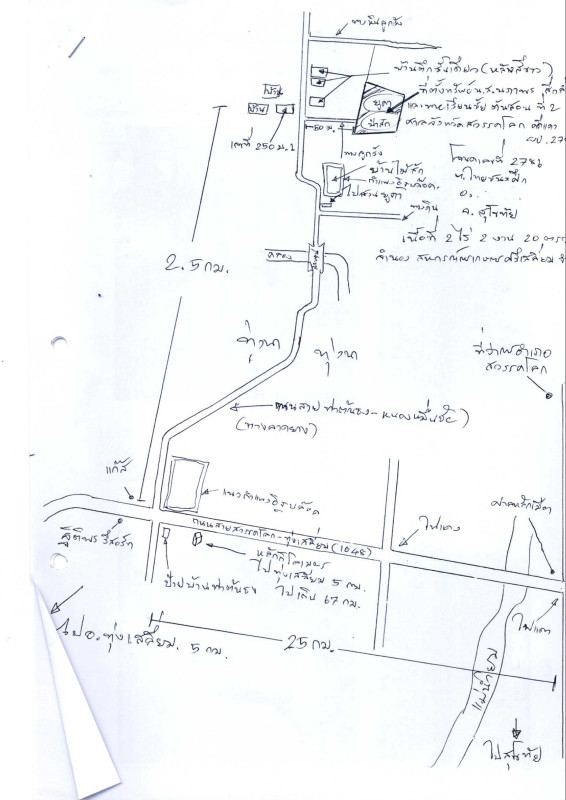 ทางดินลูกรัง
บ้านตึกชั้นเดียว (หลังสีขาว)
ที่ตั้งทรัพย์ น.ส.นภาพร
และนายเรียนชัย ต้นสอน ที่ 2
ศาลจังหวัดสวรรคโลก
พุทรา
ป่าสัก
บ้าน
บ้าน
เลขที่ 250 ม.2
50 ม.
ทางลูกรัง
บ้านไม้สัก
กำแพงอิฐบล็อค
ไปสวนพุทรา
ทางดิน
โฉนดเลขที่
อ.
จ.สุโขทัย
เนื้อที่ 2 ไร่ 2 งาน 20
คลอง
สะพาน
2.5 กม.
ทุ่งนา
ทุ่งนา
ที่ว่าการอำเภอ
สวรรคโลก
ถนนสาย ท่าต้นธง - หนองหมื่นชัย
(ทางลาดยาง)
แก๊ส
แนวกำแพงอิฐบล็อค
ถนนสายสวรรคโลก - ทุ่งเสลี่ยม (1048)
ไฟแดง
ฐิติพร รีสอร์ท
หลักกิโลเมตร
ไปทุ่งเสลี่ยม 5 กม.
ไปเถิน 67 กม.
ป้ายบ้านท่าต้นธง
ไป อ.ทุ่งเสลี่ยม 5 กม.
25 กม.
แม่น้ำยม
ไฟแดง
ไปสุโขทัย